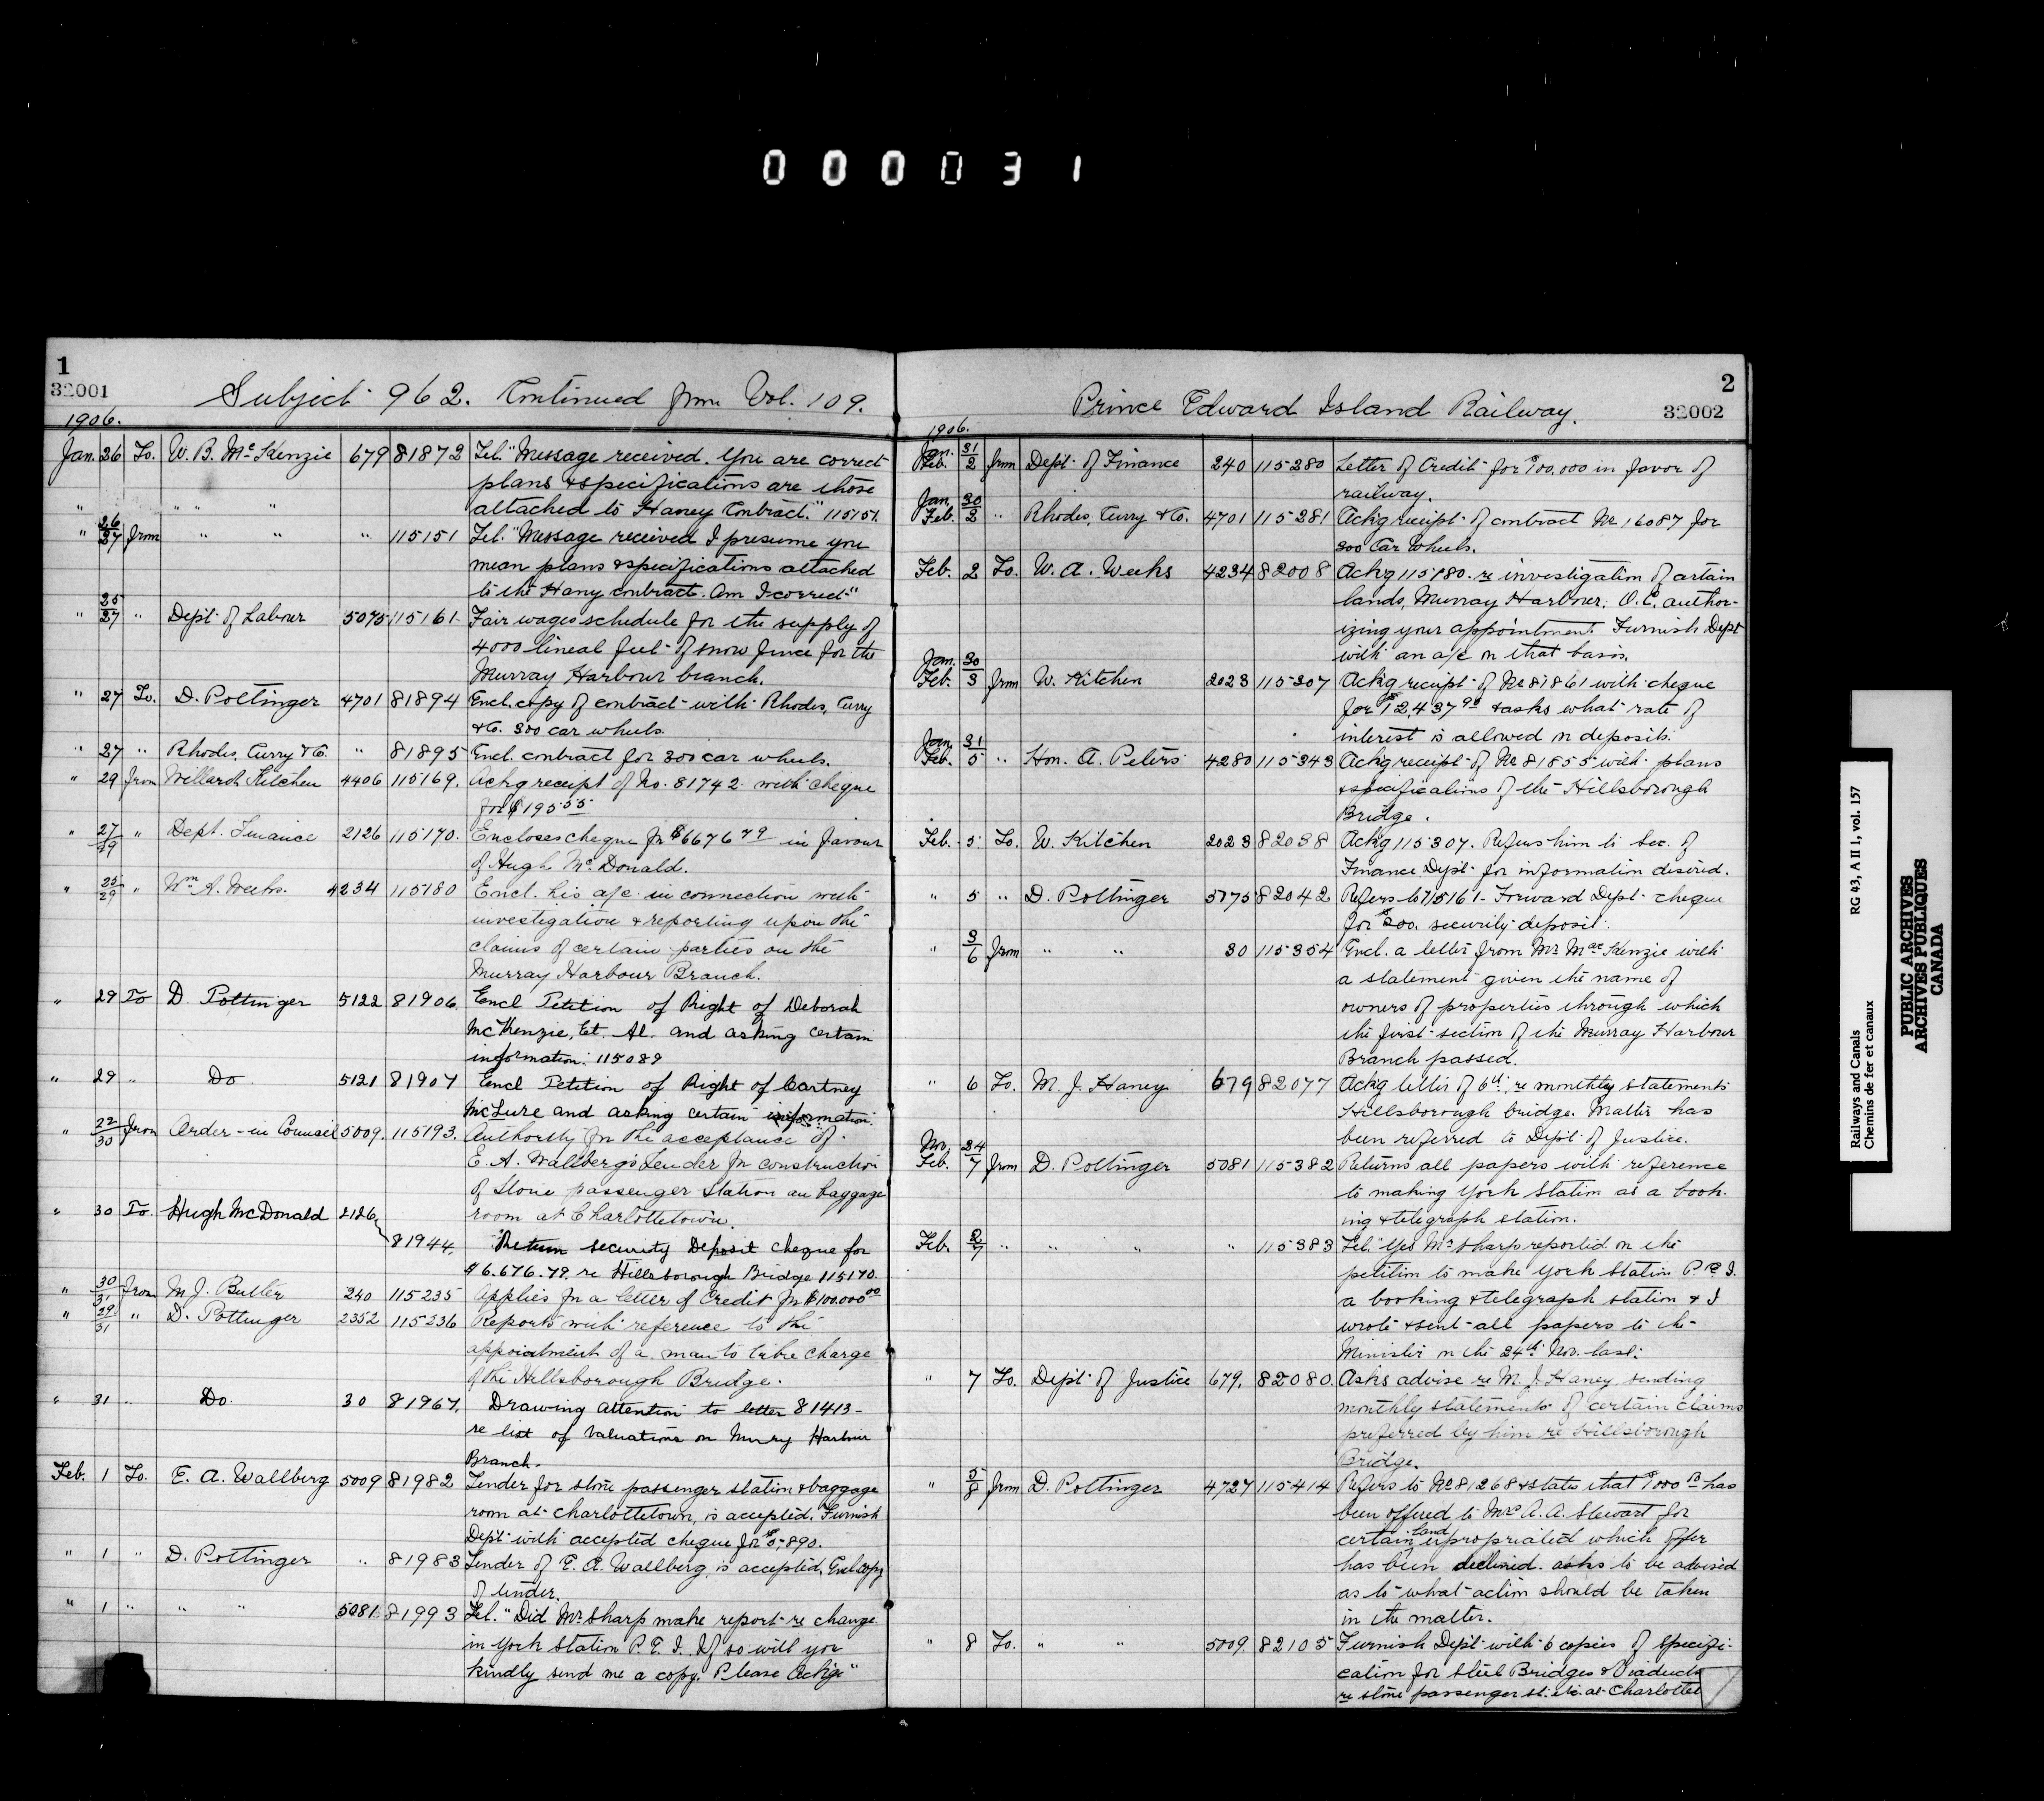 000031
1
32001
Subject 962. Continued from Vol. 109.
1906.
Jan. 26 To. W. B. McKenzie 679 81872 Tel. "Message received. You are correct
plans & specifications are those
attached to Haney Contract." 115151.
" 26/27 from " " " 115151 Tel. "Message received I presume you
mean plans & specifications attached
to the Hany contract. Am I correct"
" 25/27 " Dept of Labour 5075 115161 Fair wages schedule for the supply of
4000 lineal feet of snow fence for the
Murray Harbour branch.
" 27 To. D. Pottinger 4701 81894 Encl. copy of contract with Rhodes, Curry
& Co. 300 car wheels.
" 27 " Rhodes, Curry & Co. " 81895 Encl. contract for 300 car wheels.
" 29 from Willard Kitchen 4406 115169. Ackg receipt of No. 81742 with cheque
for $195.55
" 27/29 " Dept. Finance 2126 115170. Encloses cheque for $6676 79 in favour
of Hugh McDonald.
" 25/29 " Wm A. Weeks. 4234 115180 Encl. his a/c in connection with
investigation & reporting upon the
claims of certain parties on the
Murray Harbour Branch.
" 29 To D. Pottinger 5122 81906. Encl Petition of Right of Deborah
McKenzie, Et. Al. and asking certain
information. 115089
" 29 " Do 5121 81907 Encl Petition of Right of Cartney
McLure and asking certain information.
" 22/30 from Order-in Council 5009. 115193. Authority for the acceptance of
E. A. Wallberg's Tender for construction
of stone passenger station an baggage
room at Charlottetown.
" 30 To. Hugh McDonald 2126
81944. Return security Deposit cheque for
$6.676.79. re Hillsborough Bridge 115170.
" 30/31 from M. J. Butler 240 115235 Applies for a letter of Credit for $100.000 00
" 29/31 " D. Pottinger 2352 115236 Reports with reference to the
appointment of a man to take charge
of the Hillsborough Bridge.
" 31 " Do. 30 81967. Drawing attention to letter 81413-
re list of valuations on Murry Harbour
Branch.
Feb. 1 To. E. A. Wallberg 5009 81982 Tender for stone passenger station & baggage
room at Charlottetown, is accepted. Furnish
Dept with accepted cheque for $5890.
" 1 " D. Pottinger " 81983 Tender of E. A. Wallberg, is accepted, Encl copy
of tender.
" 1 " " " 5081. 81993 Tel. "Did Mr. Sharp make report re change
in York Station P. E. I. If so will you
kindly send me a copy. Please Ackge"
2
32002
Prince Edward Island Railway.
1906.
Jan. 31/Feb. 2 from Dept of Finance 240 115280 Letter of Credit for $100,000 in favor of
railway.
Jan. 30/Feb. 2 " Rhodes, Curry & Co. 4701 115281 Ackg receipt of contract No 16087 for
300 Car Wheels.
Feb. 2 To. W. A. Weeks 4234 82008 Ackg 115180. re investigation of certain
lands, Murray Harbour. O. C. author-
izing your appointment. Furnish Dept
with an a/c on that basis.
Jan. 30/Feb. 3 from W. Kitchen 2023 115307 Ackg receipt of No 81861 with cheque
for $12,437 90 & asks what rate of
interest is allowed on deposits.
Jan. 31/Feb. 5 " Hon. A. Peters 4280 115343 Ackg receipt of No 81855 with plans
& specifications of the Hillsborough
Bridge.
Feb. 5 To. W. Kitchen 2023 82038 Ackg 115307. Refers him to Sec. of
Finance Dept for information desired.
" 5 " D. Pottinger 5775 82042 Refers to 115161. Forward Dept cheque
for $200. security deposit.
" 3/6 from " " 30 115354 Encl. a letter from Mr MacKenzie with
a statement given the name of
owners of properties through which
the first section of the Murray Harbour
Branch passed.
" 6 To. M. J. Haney 679 82077 Ackg letter of 6th re monthly statements
Hillsborough bridge. Matter has
been referred to Dept of Justice.
Nov. 24/Feb. 7 from D. Pottinger 5081 115382 Returns all papers with reference
to making York Station as a book-
ing & telegraph station.
Feb. 2/7 " " " " 115383 Tel. "Yes Mr Sharp reported on the
petition to make York Station P. E. I.
a booking & telegraph station & I
wrote & sent all papers to the
Minister on the 24th Nov. last.
" 7 To. Dept of Justice 679. 82080. Asks advise re M. J. Haney sending
monthly statements of certain claims
preferred by him re Hillsborough
Bridge.
" 5/8 from D. Pottinger 4727 115414 Refers to No 81268 & states that $1000 has
been offered to A. A. Stewart for
certain land expropriated which offer
has been declined. asks to be advised
as to what action should be taken
in the matter.
" 8 To. " " 5009. 82105 Furnish Dept with 6 copies of specifi-
cation for Steel Bridges & Viaducts
re stone passenger st. etc. at Charlottet
Railways and Canals
Chemins de fer et canaux
RG 43, A II 1, vol. 157
PUBLIC ARCHIVES
ARCHIVES PUBLIQUES
CANADA